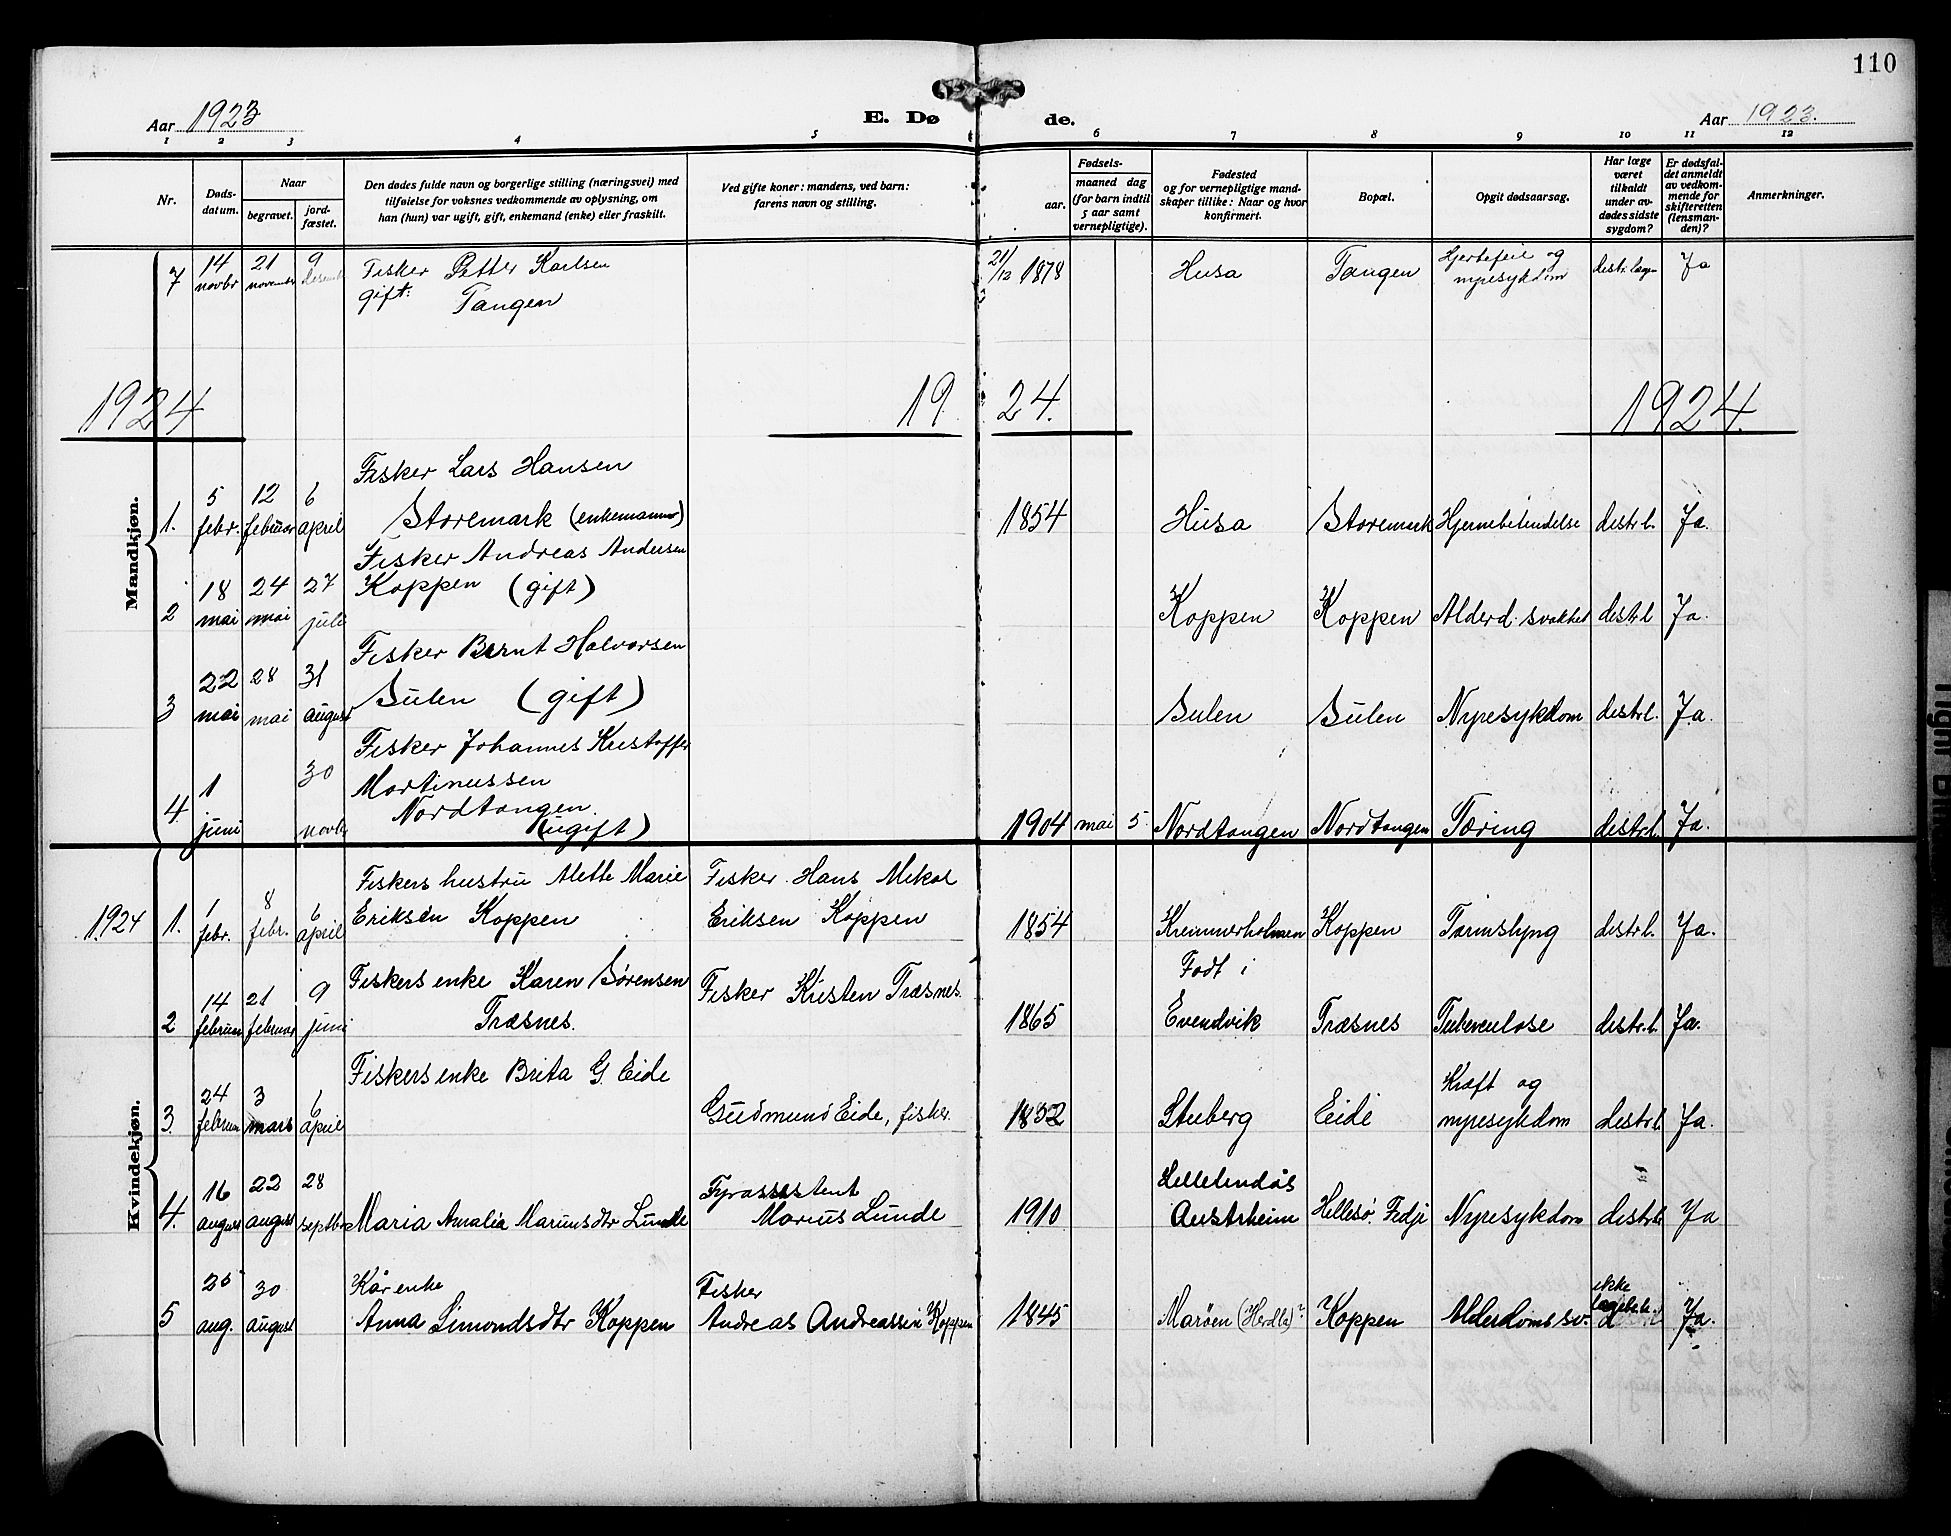 110
Aar 1923
E. Dø de.
Aar 1923.
1 2 3 4 5 6 7 8 9 10 11 12
Nr.
Døds-
datum.
Naar
begravet.
jord-
fæstet.
Den dødes fulde navn og borgerlige stilling (næringsvei) med
tilføielse for voksnes vedkommende av oplysning, om
han (hun) var ugift, gift, enkemand (enke) eller fraskilt.
Ved gifte koner: mandens, ved barn:
farens navn og stilling.
Fødsels-
aar.
maaned dag
(for barn indtil
5 aar samt
vernepligtige).
Fødested
og for vernepligtige mand-
skaper tillike: Naar og hvor
konfirmert.
Bopæl.
Opgit dødsaarsag.
Har læge
været
tilkaldt
under av-
dødes sidste
sygdom?
Er dødsfal-
det anmeldt
av vedkom-
mende for
skifteretten
(lensman-
den)?
Anmerkninger.
Mandkjøn.
7 14 novbr 21 november 9 desemb
Fisker Petter Karlsen
gift: Tangen
21/12 1878 Husa Tangen Hjertefeil og
nyresykdom
distr. læge Ja
1924 19 24. 1924.
Fisker Lars Hansen
1. 5 febr. 12 februar 6 april Storemark (enkemann) 1854 Husa Storemark Hjernebetendelse distr l. Ja.
Fisker Andreas Andersen
2 18 mai 24 mai 27 juli Koppen (gift) Koppen Koppen Alderd. svakhet distr l Ja.
Fisker Bernt Halvorsen
3 22 mai 28 mai 31 august Sulen (gift) Sulen Sulen Nyresykdom distr l. Ja.
Fisker Johannes Kristoffer
Martinussen
4. 1 juni 30 novbr Nordtangen
(ugift) 1904 mai 5. Nordtangen Nordtangen Tæring distr l. Ja.
Kvindekjøn.
Fiskers hustru Alette Marie Fisker Hans Mikal
1924 1. 1 febr. 8 febr. 6 april Eriksen Koppen Eriksen Koppen 1854 Kreimmerholmen Koppen Tarmslyng distr l. Ja.
Fiskers enke Karen Sørensen Fisker Kristen Træsnes. Født i
2 14 februar 21 februar 9 juni Træsnes. 1865 Evendvik Træsnes Tuberculose distr. l. Ja.
Fiskers enke Brita G. Eide Kræft og
3. 24 februar 3 mars 6 april Gudmund Eide, fisker. 1852 Stuberg Eide nyresykdom distr l. Ja.
Fyrassistent
4. 16 august 22 august 28 septbr Maria Amalia Mariusdtr Lunde Marius Lunde 1910 Austrheim Hellesø. Fedje Nyresykdom distr l. Ja
Kår enke Fisker ikke
5 25 aug. 30 august Anna Simondsdtr Koppen Andreas Andreassen Koppen 1845 Marøen (Herdla)? Koppen Alderdoms sv. Ja.